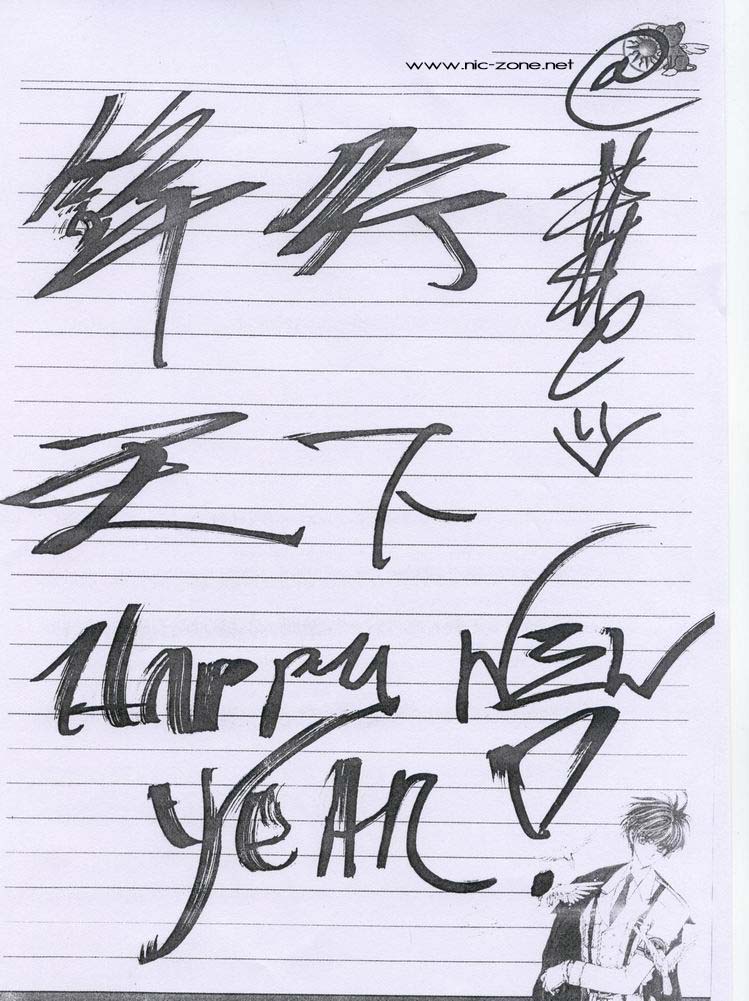 www.nic-zone.net
锋行
天下
HAPPY NEW
YEAR!